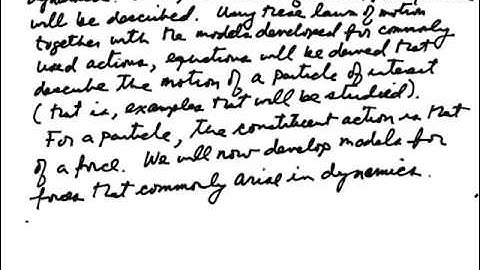 will be described. Using these laws of motion
together with the models developed for commonly
used actions, equations will be derived that
describe the motion of a particle of interest
(that is, examples that will be studied).
For a particle, the constituent action is that
of a force. We will now develop models for
forces that commonly arise in dynamics.